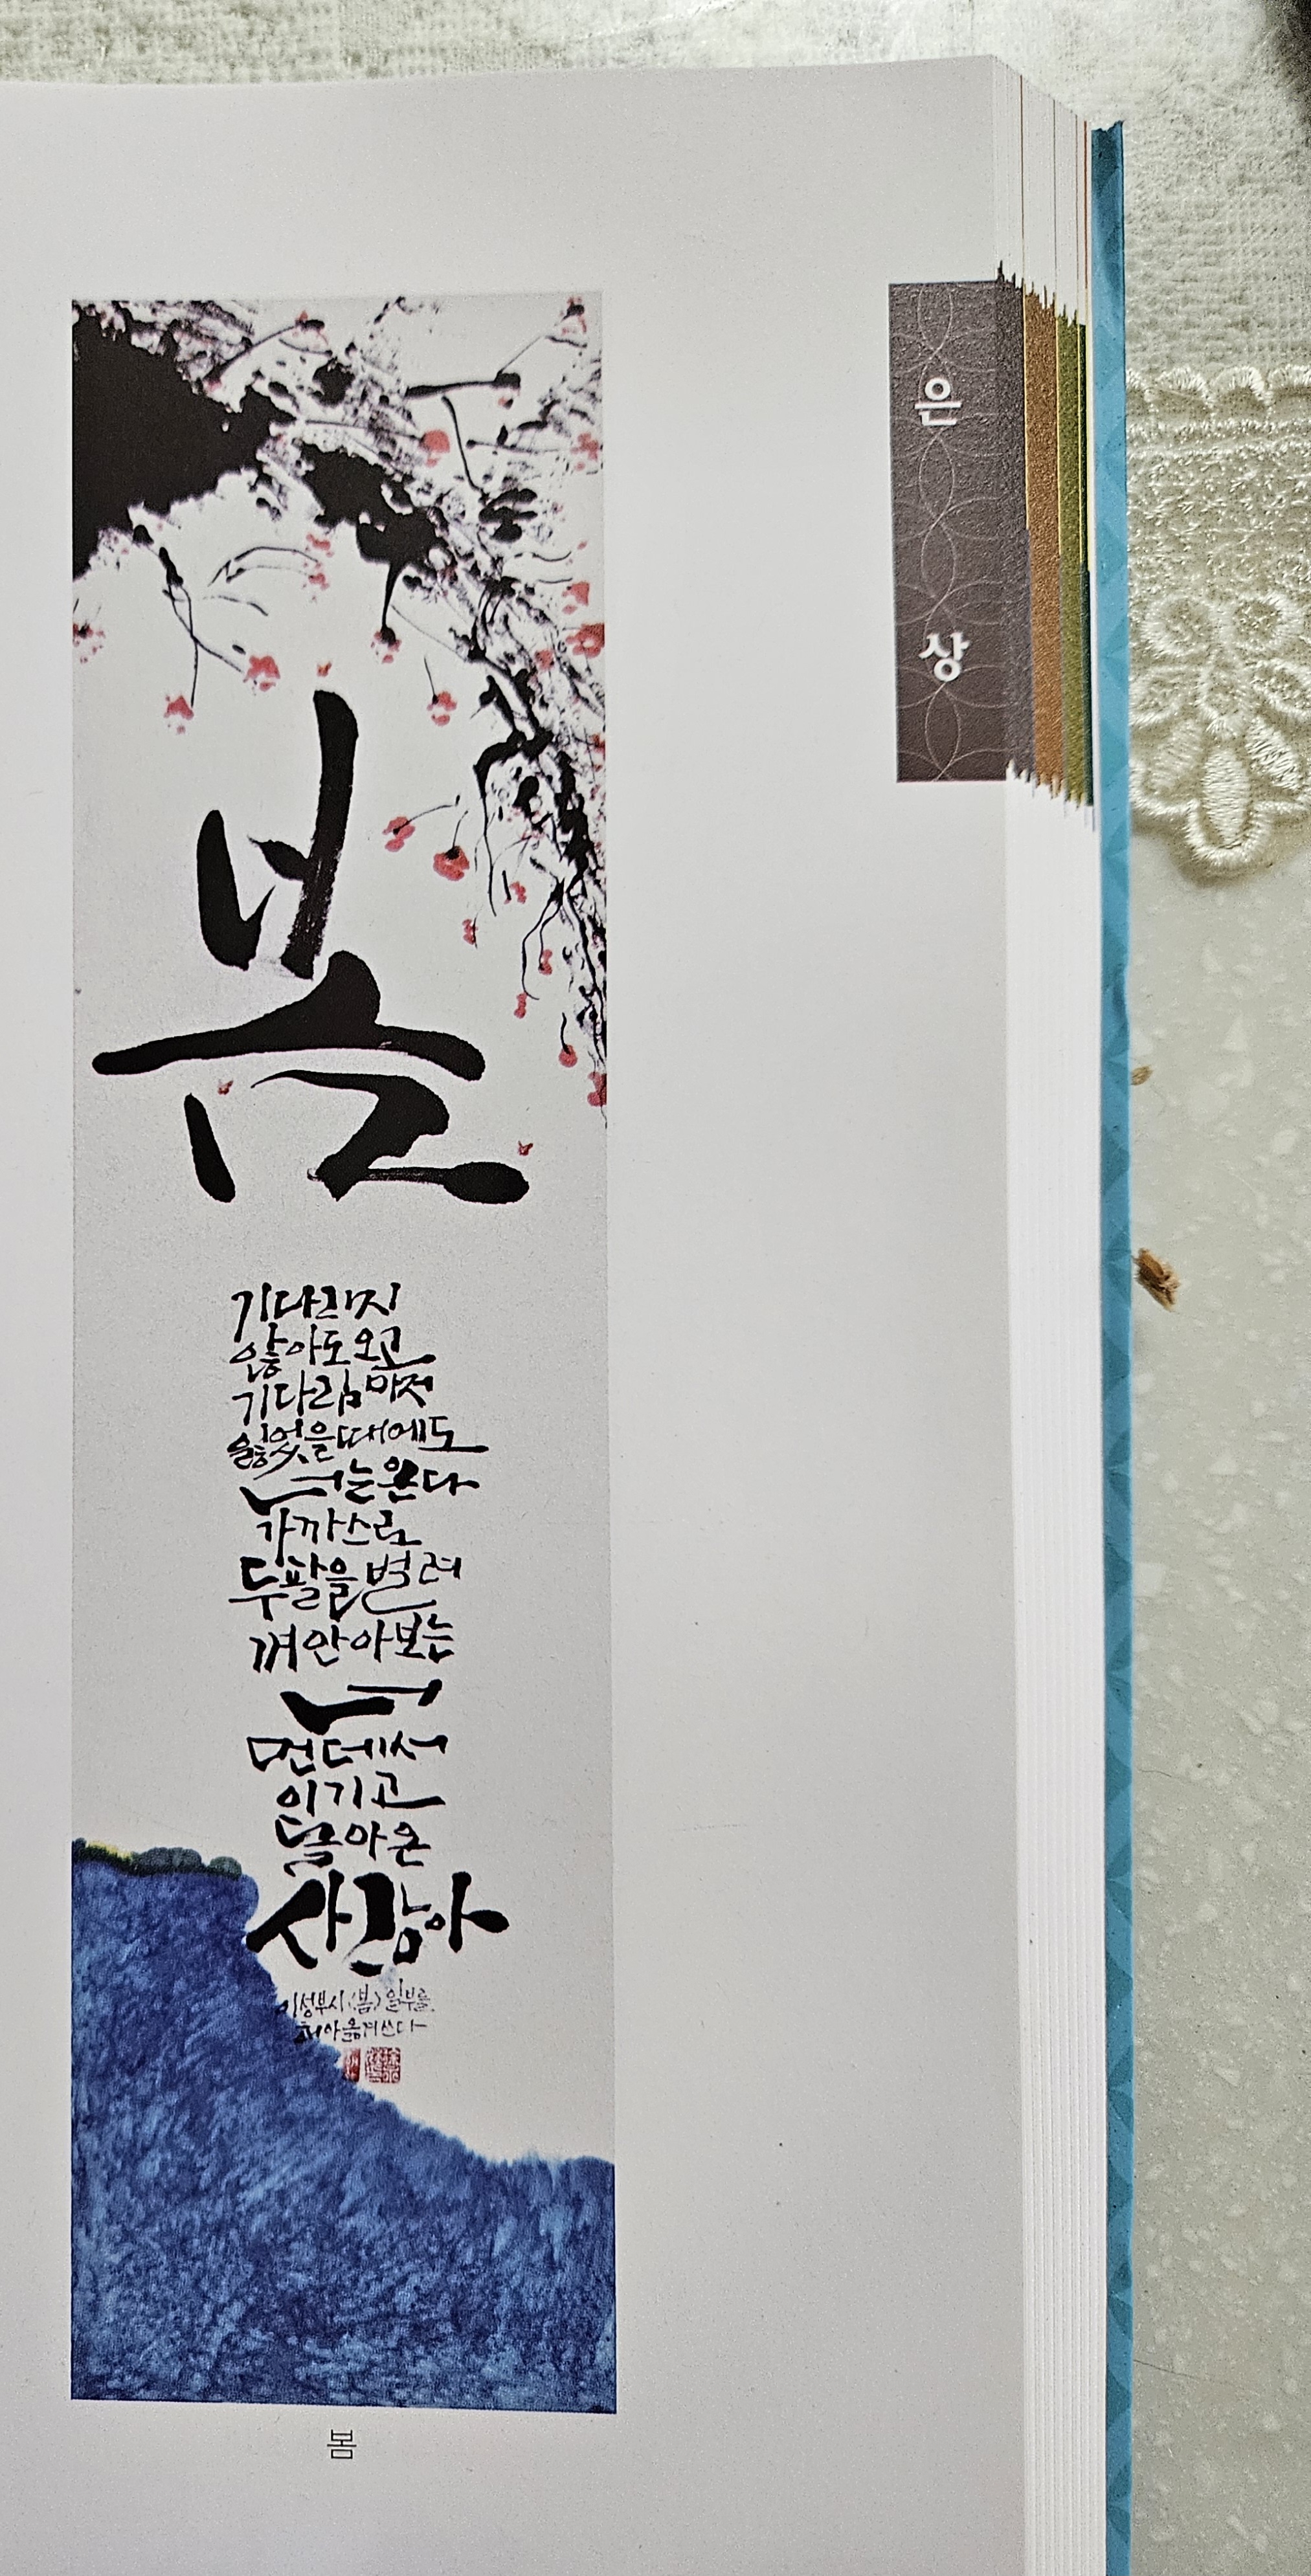 은
상
봄
기다리지
않아도 오고
기다림마저
잃었을 때에도
너는 온다
가까스로
두 팔을 벌려
껴안아 보는
너
먼 데서
이기고
돌아온
사람아
이성부 시 〈봄〉 일부를
옮겨 쓰다
봄